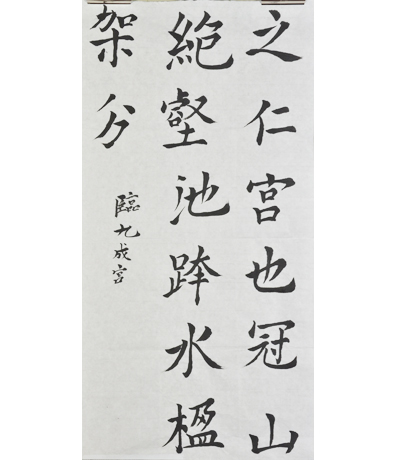 之仁宫也冠山
絶壑池跨水楹
架分
臨九成宫